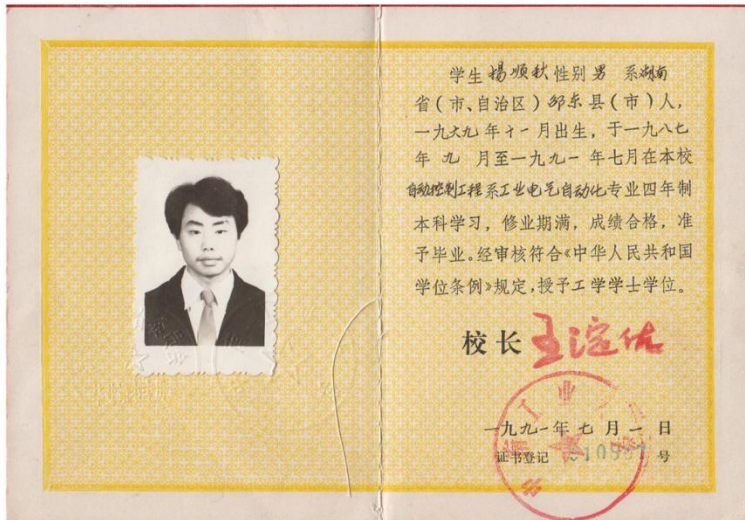 学生杨顺秋性别男 系湖南
省（市、自治区）邵东县（市）人，
一九六九年十一月出生，于一九八七
年 九 月至一九九一年七月在本校
自动控制工程系工业电气自动化专业四年制
本科学习，修业期满，成绩合格，准
予毕业。经审核符合《中华人民共和国
学位条例》规定，授予工学学士学位。
校长 王淀佐
一九九一年 七 月 一 日
证书登记 号